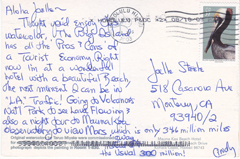 Aloha Joelle~
Thought you'd enjoy the
watercolor. The Big Island
has all the Pros & Cons of
a Tourist Economy. Right
now I'm at a wonderful
hotel with a beautiful Beach,
the next moment I can be in
"LA" Traffic! Going to Volcanoes
Nat'l Park to see lava flowing &
also a night tour to Mauna Kea
observatory to view Mars, which is only 34.6 million miles
the usual 300 million!
HONOLULU
Joelle Steele
Monterey, CA
93940/2